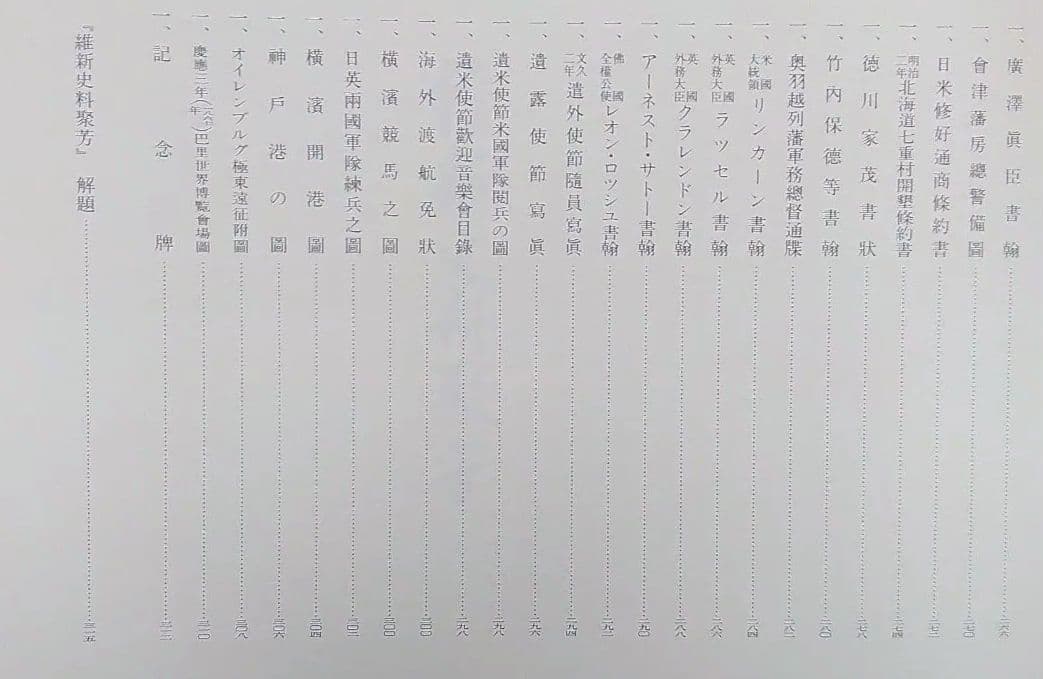 一、廣澤眞臣書翰……二六六
一、會津藩房總警備圖……二七〇
一、日米修好通商條約書……二七二
一、明治二年北海道七重村開墾條約書……二七四
一、德川家茂書狀……二七八
一、竹內保德等書翰……二八〇
一、奧羽越列藩軍務總督通牒……二八二
一、米國大統領リンカーン書翰……二八四
一、英國外務大臣ラツセル書翰……二八六
一、英國外務大臣クラレンドン書翰……二八八
一、アーネスト・サトー書翰……二九〇
一、佛國全權公使レオン・ロツシユ書翰……二九二
一、文久二年遣外使節隨員寫眞……二九四
一、遣露使節寫眞……二九六
一、遣米使節米國軍隊閱兵の圖……二九八
一、遣米使節歡迎音樂會目錄……二九八
一、海外渡航免狀……三〇〇
一、橫濱競馬之圖……三〇〇
一、日英兩國軍隊練兵之圖……三〇二
一、橫濱開港圖……三〇四
一、神戶港の圖……三〇六
一、オイレンブルグ極東遠征附圖……三〇八
一、慶應三年(一八六七年)巴里世界博覽會場圖……三一〇
一、記念牌……三一二
『維新史料聚芳』 解題……三一五